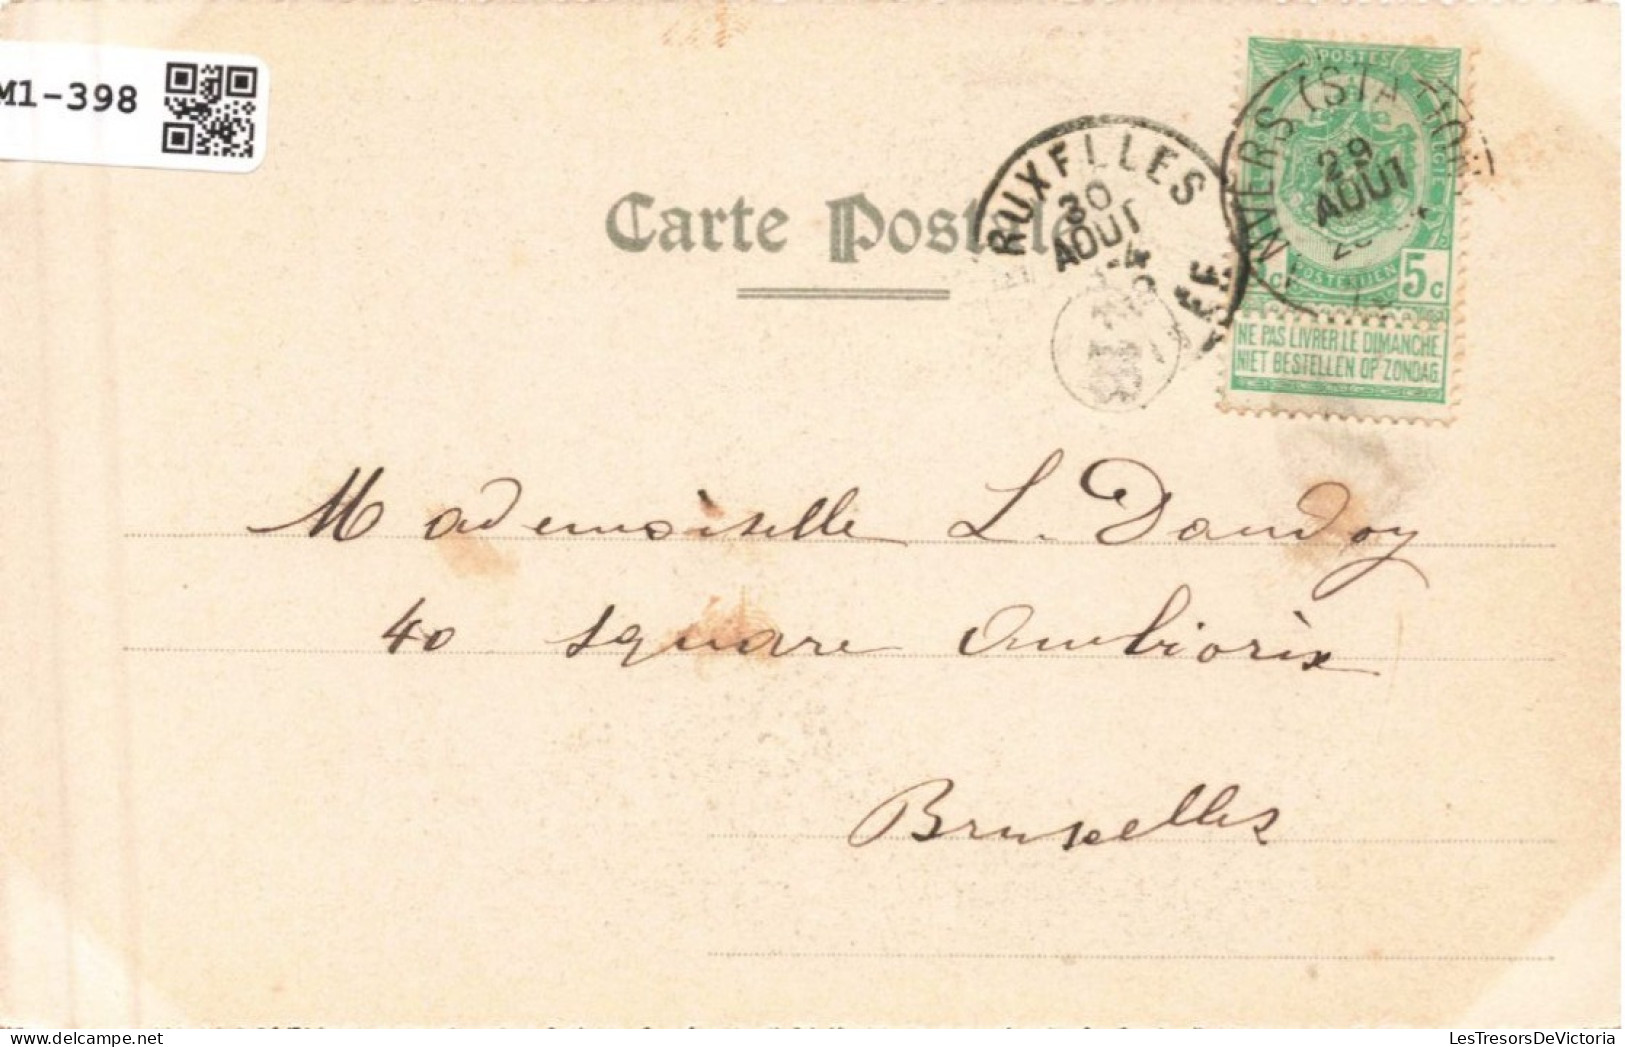 M1-398
Carte Postale
BRUXELLES
30
AOUT
ANVERS (STATION)
29
AOUT
POSTES
POSTERIJEN
5c
NE PAS LIVRER LE DIMANCHE
NIET BESTELLEN OP ZONDAG
Mademoiselle L. Dandoy
40 square Ambiorix
Bruxelles
LesTresorsDeVictoria